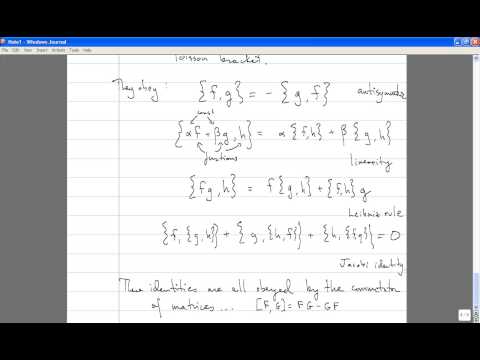 Note1 - Windows Journal
File Edit View Insert Actions Tools Help
Poisson bracket.
They obey: {f,g} = - {g,f} antisymmetr
const
{αf + βg, h} = α {f,h} + β {g,h}
functions
linearity
{fg, h} = f {g,h} + {f,h} g
Leibniz rule
{f, {g,h}} + {g, {h,f}} + {h, {f,g}} = 0
Jacobi identity
These identities are all obeyed by the commutator
of matrices... [F,G] = FG - GF